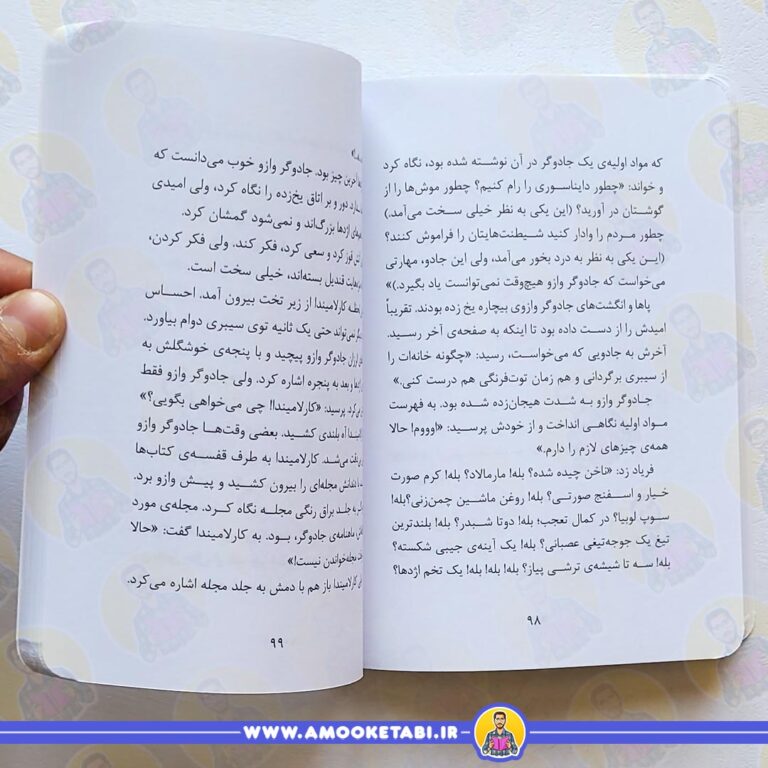 که مواد اولیه‌ی یک جادوگر در آن نوشته شده بود، نگاه کرد
و خواند: «چطور دایناسوری را رام کنیم؟ چطور موش‌ها را از
گوشتان در آورید؟ (این یکی به نظر خیلی سخت می‌آمد.)
چطور مردم را وادار کنید شیطنت‌هایتان را فراموش کنند؟
(این یکی به نظر به درد بخور می‌آمد، ولی این جادو، مهارتی
می‌خواست که جادوگر وازو هیچ‌وقت نمی‌توانست یاد بگیرد.)»
پاها و انگشت‌های جادوگر وازوی بیچاره یخ زده بودند. تقریباً
امیدش را از دست داده بود تا اینکه به صفحه‌ی آخر رسید.
آخرش به جادویی که می‌خواست، رسید: «چگونه خانه‌ات را
از سیبری برگردانی و هم زمان توت‌فرنگی هم درست کنی.»
جادوگر وازو به شدت هیجان‌زده شده بود. به فهرست
مواد اولیه نگاهی انداخت و از خودش پرسید: «اوووم! حالا
همه‌ی چیزهای لازم را دارم.»
فریاد زد: «ناخن چیده شده؟ بله! مارمالاد؟ بله! کرم صورت
خیار و اسفنج صورتی؟ بله! روغن ماشین چمن‌زنی؟بله!
سوپ لوبیا؟ در کمال تعجب؛ بله! دوتا شبدر؟ بله! بلندترین
تیغ یک جوجه‌تیغی عصبانی؟ بله! یک آینه‌ی جیبی شکسته؟
بله! سه تا شیشه‌ی ترشی پیاز؟ بله! بله! بله! یک تخم اژدها؟
۹۸
آخرین چیز بود. جادوگر وازو خوب می‌دانست که
دور و بر اتاق یخ‌زده را نگاه کرد، ولی امیدی
اژدها بزرگ‌اند و نمی‌شود گمشان کرد.
قوز کرد و سعی کرد، فکر کند. ولی فکر کردن،
قندیل بسته‌اند، خیلی سخت است.
کارلامیندا از زیر تخت بیرون آمد. احساس
نمی‌تواند حتی یک ثانیه توی سیبری دوام بیاورد.
لرزان جادوگر وازو پیچید و با پنجه‌ی خوشگلش به
و بعد به پنجره اشاره کرد. ولی جادوگر وازو فقط
کرد. پرسید: «کارلامیندا! چی می‌خواهی بگویی؟»
آه بلندی کشید. بعضی وقت‌ها جادوگر وازو
می‌شد. کارلامیندا به طرف قفسه‌ی کتاب‌ها
دندانش مجله‌ای را بیرون کشید و پیش وازو برد.
به جلد براق رنگی مجله نگاه کرد. مجله‌ی مورد
ماهنامه‌ی جادوگر، بود. به کارلامیندا گفت: «حالا
مجله‌خواندن نیست!»
کارلامیندا باز هم با دمش به جلد مجله اشاره می‌کرد.
۹۹
WWW.AMOOKETABI.IR